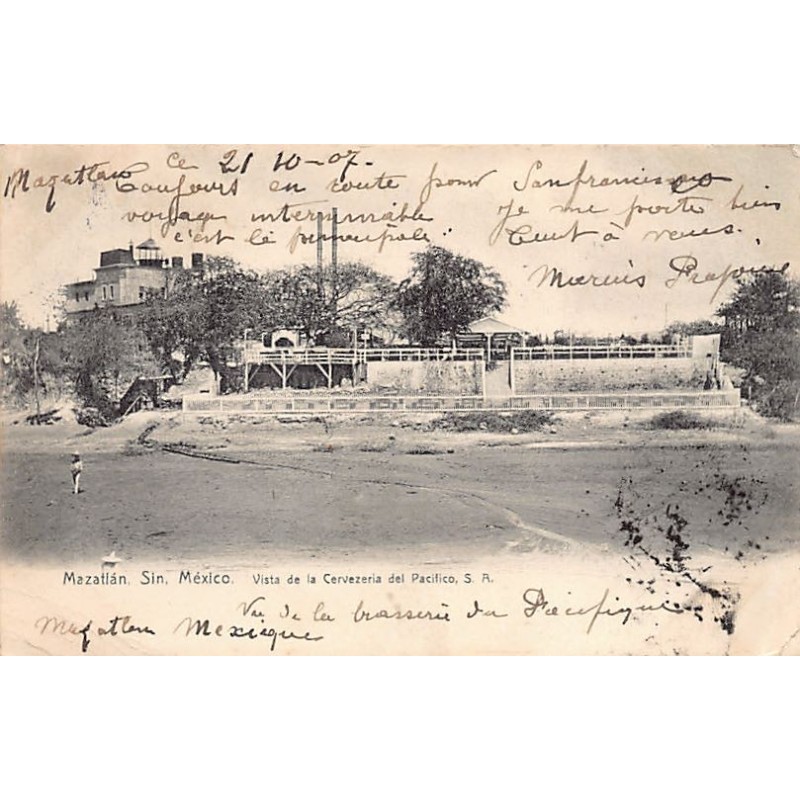 Mazatlan ce 21 10-07.
Toujours en route pour Sanfrancisco
voyage interminable Je me porte bien
c'est le principale. Tout à vous.
Marius
Mazatlán, Sin, México. Vista de la Cervezeria del Pacifico, S. A.
Vue de la brasserie du Pacifique
Mazatlan Mexique